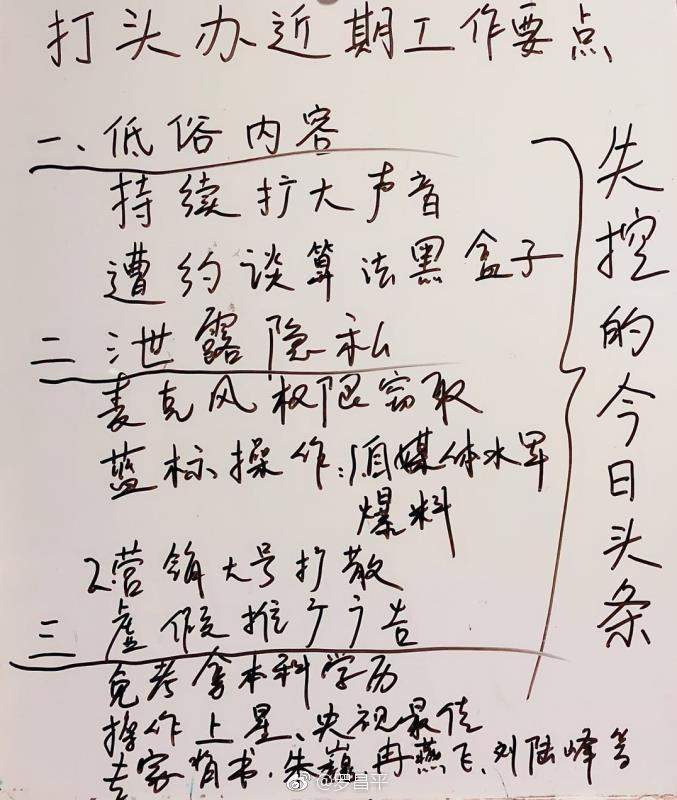 打头办近期工作要点
一、低俗内容
持续扩大声音
遭约谈算法黑盒子
二 泄露隐私
麦克风权限窃取
蓝标操作:1自媒体水军
爆料
2营销大号扩散
三 虚假推广广告
免考拿本科学历
操作上星、央视最佳
专家背书.朱巍.冉燕飞、刘陆峰等
失控的今日头条
@罗昌平